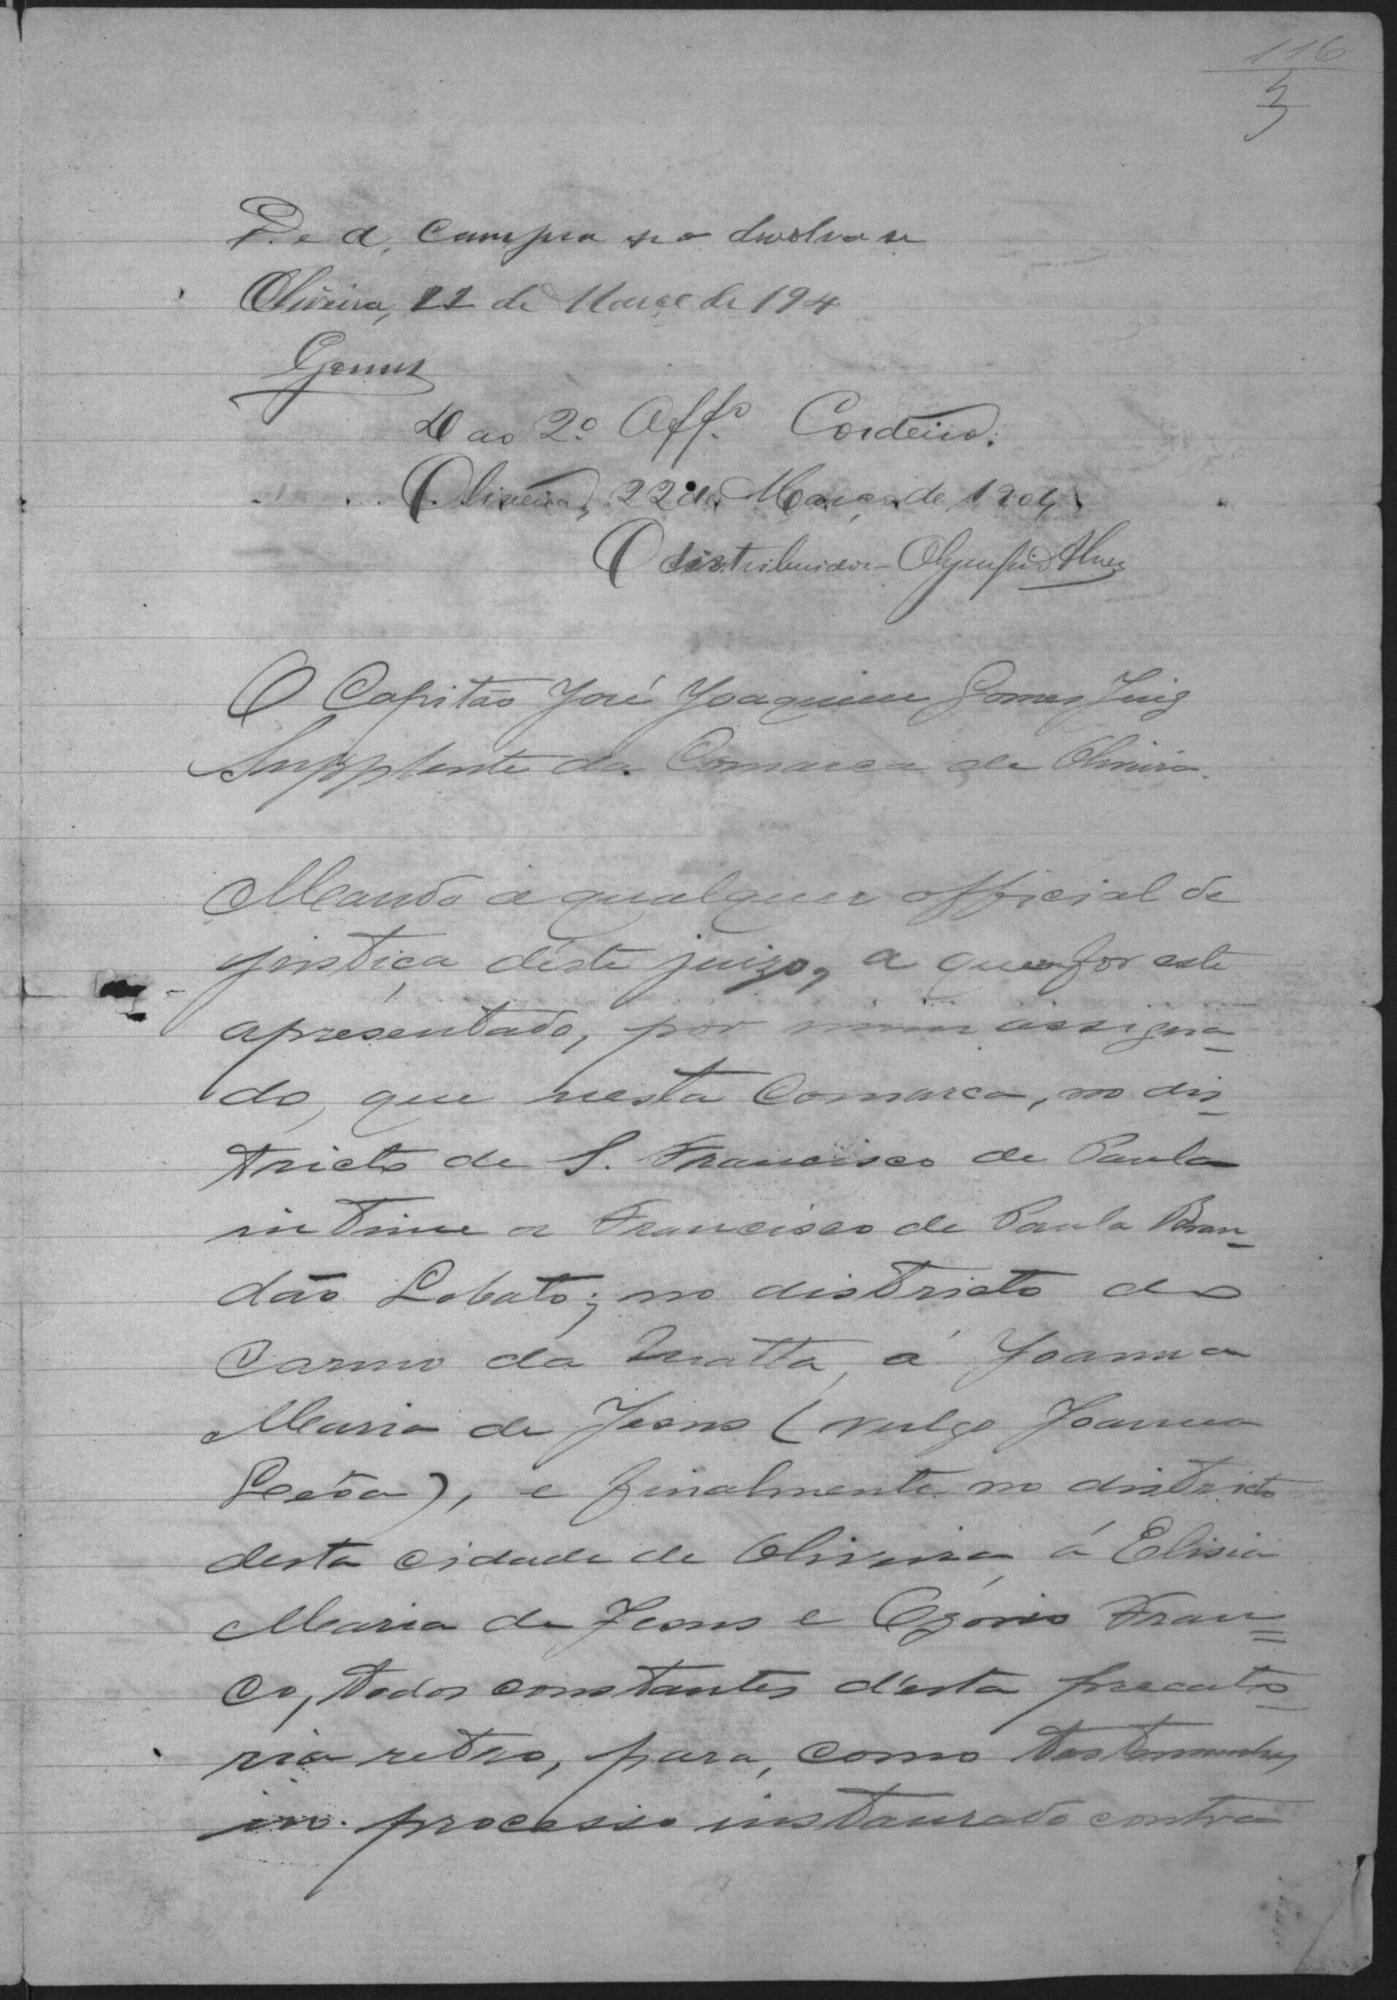 116
3
D. e a. cumpra se e devolva se
Oliveira, 22 de Março de 194
Gomes
D ao 2º Off.º Cordeiro.
Oliveira, 22 de Março de 1904.
O distribuidor - Olympio Alves
O Capitão José Joaquim Gomes Juiz
Supplente da Comarca de Oliveira.
Mando a qualquer official de
justiça déste juizo, a quem for este
apresentado, por mim assigna-
do, que nesta Comarca, no dis-
tricto de S. Francisco de Paula
intime a Francisco de Paula Bran-
dão Lobato; no districto do
Carmo da Matta, á Joanna
Maria de Jesus (vulgo Joanna
), e finalmente no districto
desta cidade de Oliveira, á Elisia
Maria de Jesus e Ozório Fran=
co, todos constantes d'esta precato-
ria retro, para, como testemunhas
no processo instaurado contra